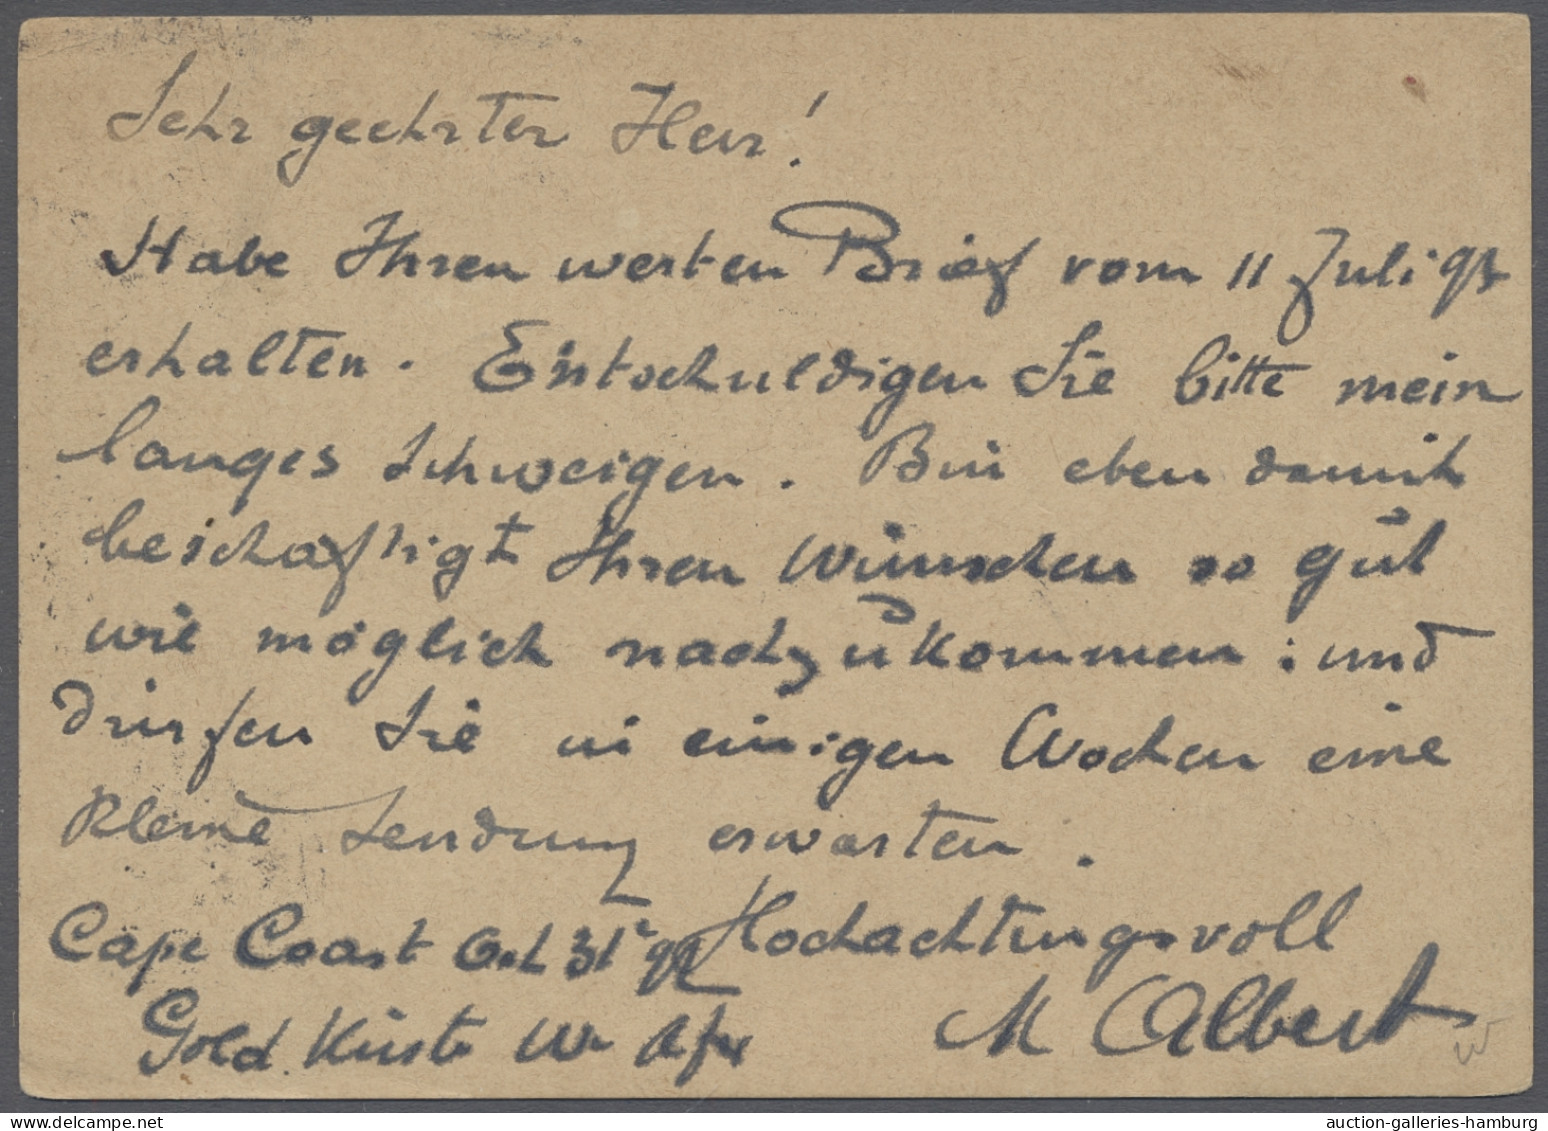 Sehr geehrter Herr!
Habe Ihren werten Brief vom 11 Juli
erhalten. Entschuldigen Sie bitte mein
langes Schweigen. Bin eben damit
beschaftigt Ihren Wünschen so gut
wie möglich nachzukommen: und
dürfen Sie in einigen Wochen eine
kleine Sendung erwarten.
Hochachtungsvoll
Cape Coast Oct 31
M Albert
Gold Küste W
auction-galleries-hamburg